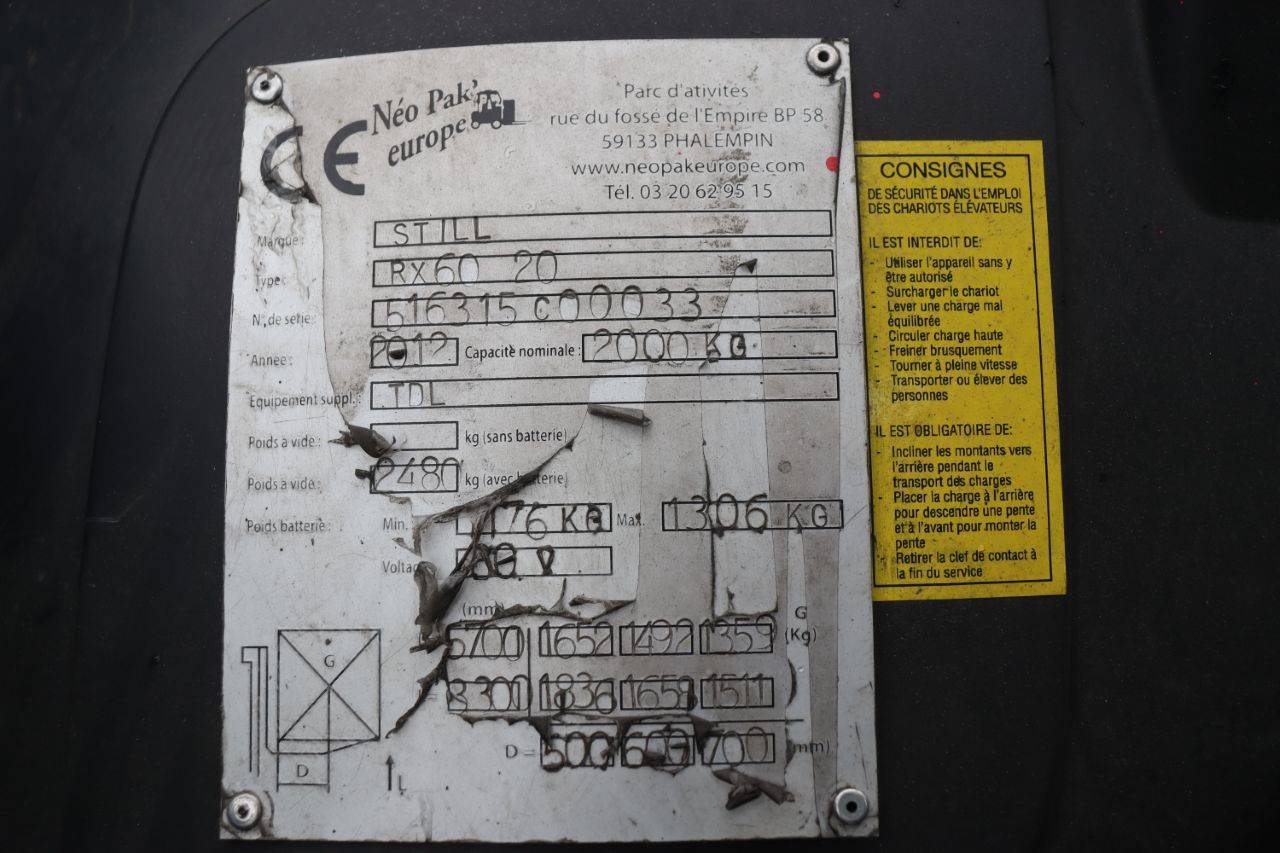 CE
Néo Pak'
europe
Parc d'ativités
rue du fossé de l'Empire BP 58
59133 PHALEMPIN
www.neopakeurope.com
Tél. 03 20 62 95 15
Marque: STILL
Type: RX60 20
N° de série: 516315C00033
Année: 2012 Capacité nominale: 2000 KG
Equipement suppl.: TDL
Poids à vide: kg (sans batterie)
Poids à vide: 2480 kg (avec
Poids batterie: Min. Max. 1306 KG
80 V
(mm) G
5700 1652 1492 1359 (Kg)
3301 1836 1659 1511
D = 500 600 700 (mm)
G
D
CONSIGNES
DE SÉCURITÉ DANS L'EMPLOI
DES CHARIOTS ÉLÉVATEURS
IL EST INTERDIT DE:
- Utiliser l'appareil sans y
être autorisé
- Surcharger le chariot
- Lever une charge mal
équilibrée
- Circuler charge haute
- Freiner brusquement
- Tourner à pleine vitesse
- Transporter ou élever des
personnes
IL EST OBLIGATOIRE DE:
- Incliner les montants vers
l'arrière pendant le
transport des charges
- Placer la charge à l'arrière
pour descendre une pente
et à l'avant pour monter la
pente
- Retirer la clef de contact à
la fin du service